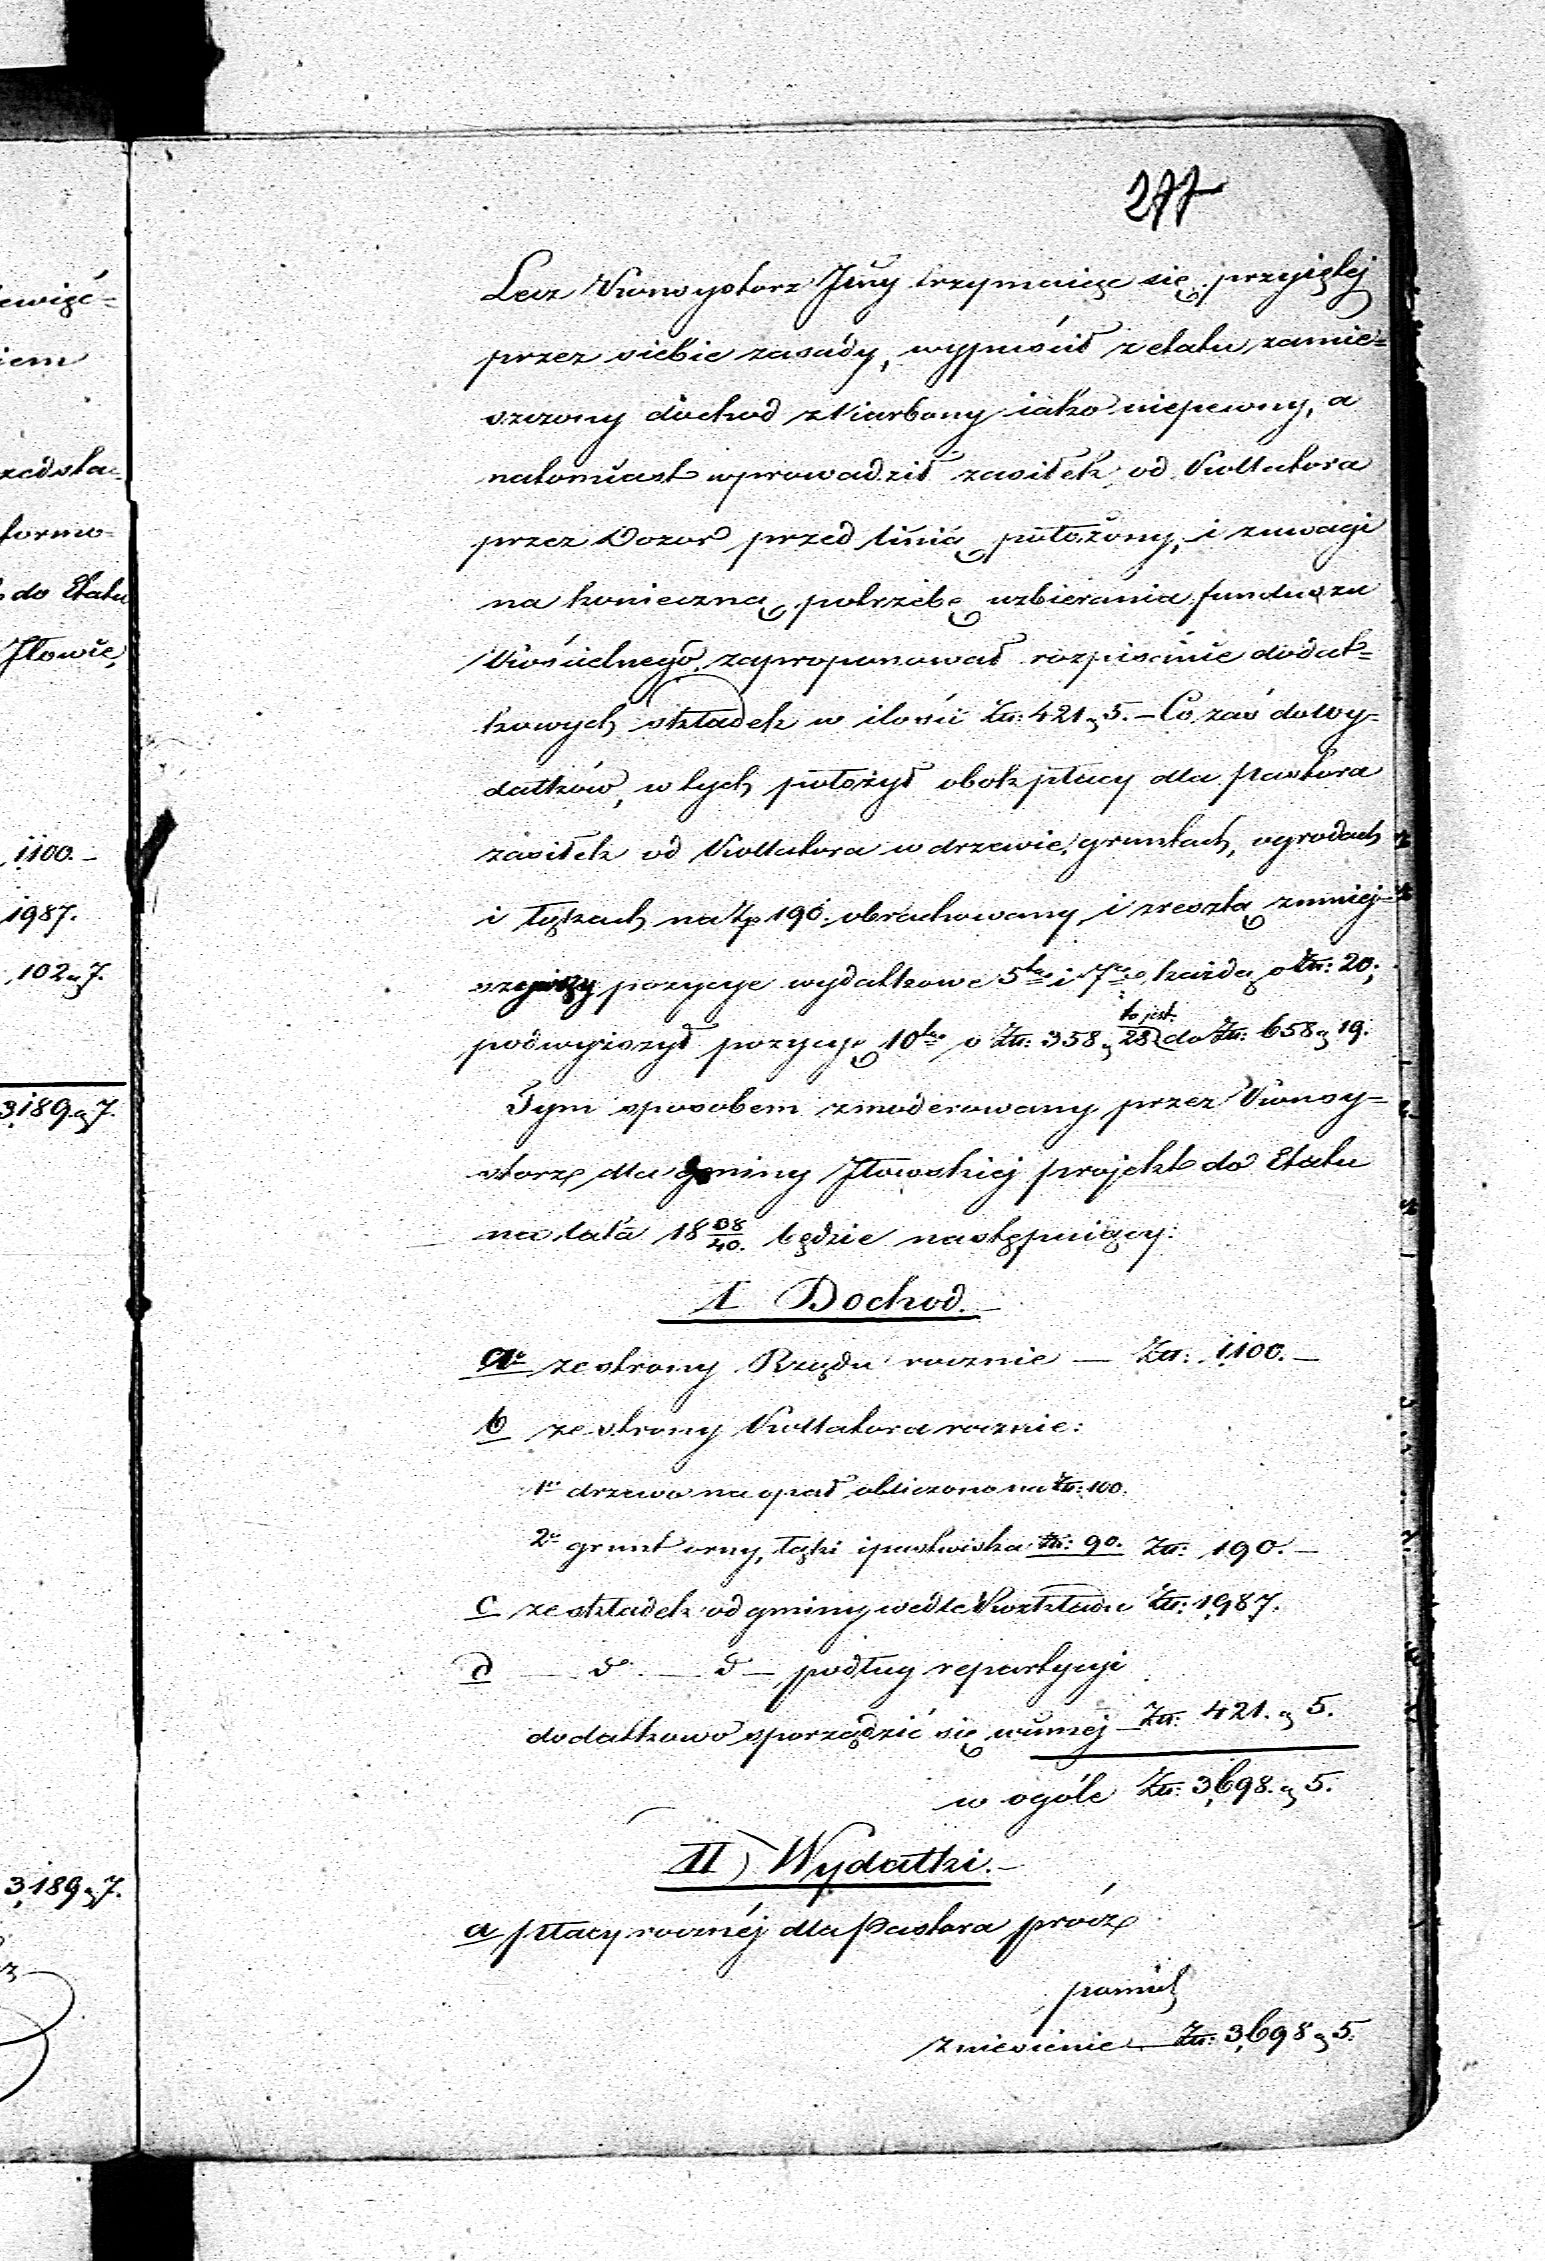 277
Lecz Konsystorz Jlny trzymaiąc się przyiętej
przez siebie zasady, wypuścił z etatu zamie=
szczony dochod z Karbony iako niepewny, a
natomiast wprowadził zasiłek od Kollatora
przez Dozor przed linią położony, i z uwagi
na konieczną potrzebę uzbierania funduszu
Kościelnego, zaproponował rozpisanie dodat=
kowych składek w ilości Złł: 421 g 5. – Co zaś do Wy=
datków, w tych położył obok płacy dla Pastora
zasiłek od Kollatora w drzewie, gruntach, ogrodach
i łąkach na Zp 190. obrachowany, i zresztą zmniej=
szywszy pozycye wydatkowe 5tą i 7mą każdą o Złł: 20;
to jest:
podwyższył pozycyę 10tą o Złł: 358 g 28 do Złł: 658 g 19.
Tym sposobem zmoderowany przez Konsy=
storz dla gminy Jłowskiej projekt do Etatu
na lata 18 38/40. będzie następuiący:
I Dochod.–
a. ze strony Rządu rocznie — Złł: 1,100.–
b ze strony Kollatora rocznie:
1o drzewo na opał obliczono na Złł: 100.
2o grunt orny, łąki i pastwiska Złł: 90. Złł: 190.–
c ze składek od gminy wedle Rozkładu Złł: 1,987.
d — do — do — podług repartycyi
dodatkowo sporządzić się winnej — Złł: 421. g 5.
w ogóle Złł: 3,698. g 5.
II) Wydatki.–
a płacy rocznéj dla Pastora prócz
Zniesienie — Złł: 3,698 g 5.
iem
do Etatu
Jłowie,
1100.–
1987.
102 g 7.
3,189 g 7.
3,189 g 7.